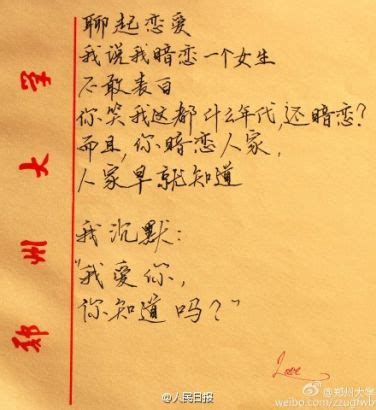 聊起恋爱
我说我暗恋一个女生
不敢表白
你笑我这都什么年代,还暗恋?
而且,你暗恋人家,
人家早就知道
我沉默:
"我爱你,
你知道吗?"
郑州大学
Love
@人民日报
@郑州大学
weibo.com/zzugfwb